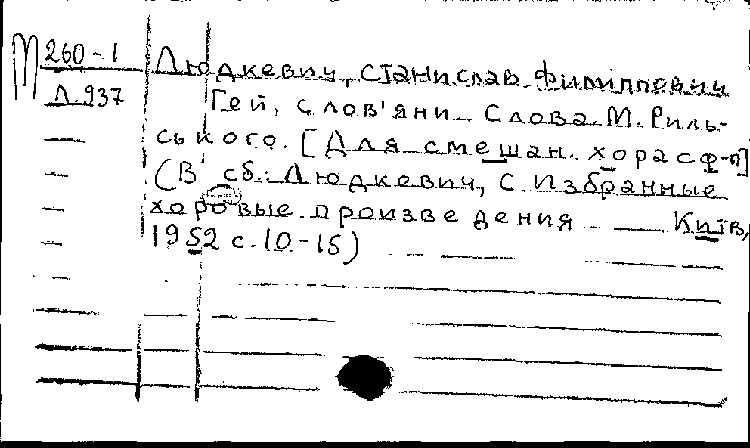 М 260-1 Людкевич, Станислав Филиппович
Л 937 Гей, слов'яни. Слова М. Риль-
ського. [Для смешан. хора с ф-п]
(В сб.: Людкевич, С. Избранные
хоровые произведения Київ,
1952 с. 10-15)